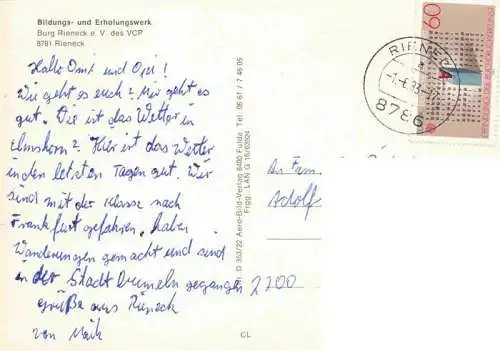 Bildungs- und Erholungswerk
Burg Rieneck e. V. des VCP
8781 Rieneck
Hallo Omi und Opi!
Wie geht es euch? Mir geht es
gut. Wie ist das Wetter in
Elmshorn? Hier ist das Wetter
in den letzten Tagen gut. Wir
sind mit der Klasse nach
Frankfurt gefahren, haben
Wanderungen gemacht und sind
in der Stadt bumeln gegangen
Grüße aus Rieneck
von Maik
CL
Aero-Bild-Verlag 6400 Fulda, Tel. 06 61 / 7 46 05
60
RIENECK
8786
An Fam.
Adolf
2200